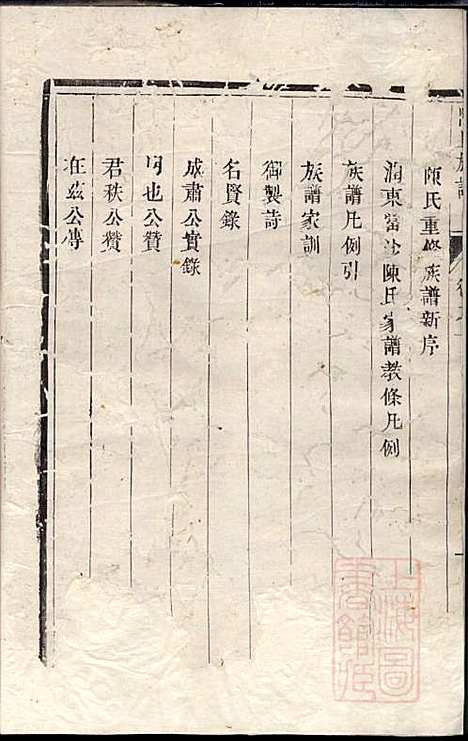 陳氏重修族譜新序
潤東富沙陳氏家譜教條凡例
族譜凡例引
族譜家訓
御製詩
名賢錄
成肅公實錄
也公贊
君秩公贊
在茲公傳
上海圖書館藏